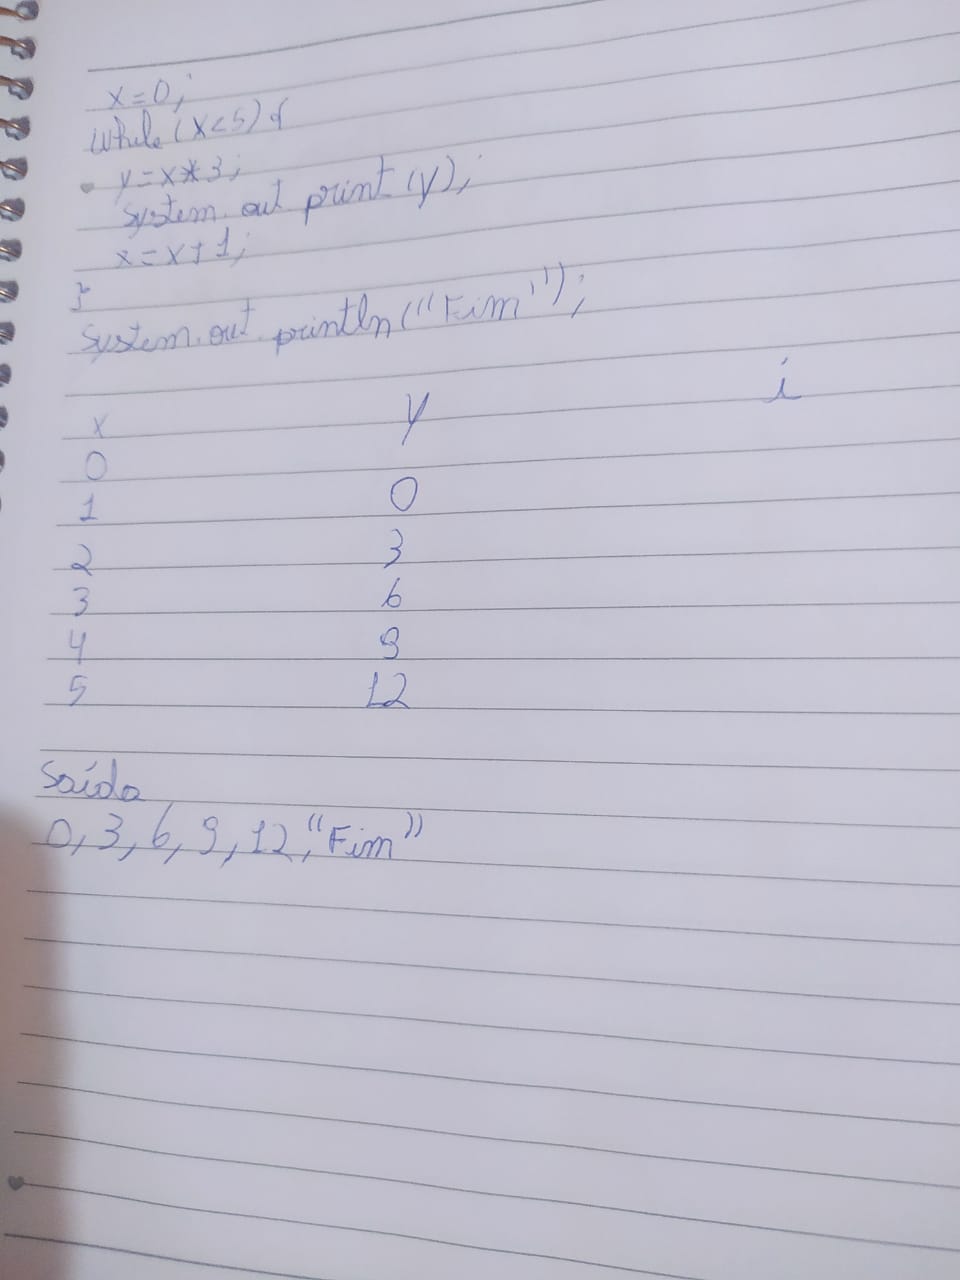 x=0;
while (x<5) {
y=x*3;
System.out print (y);
x=x+1;
}
System.out.println("Fim");
x y i
0
1 0
2 3
3 6
4 9
5 12
Saída
0, 3, 6, 9, 12, "Fim"